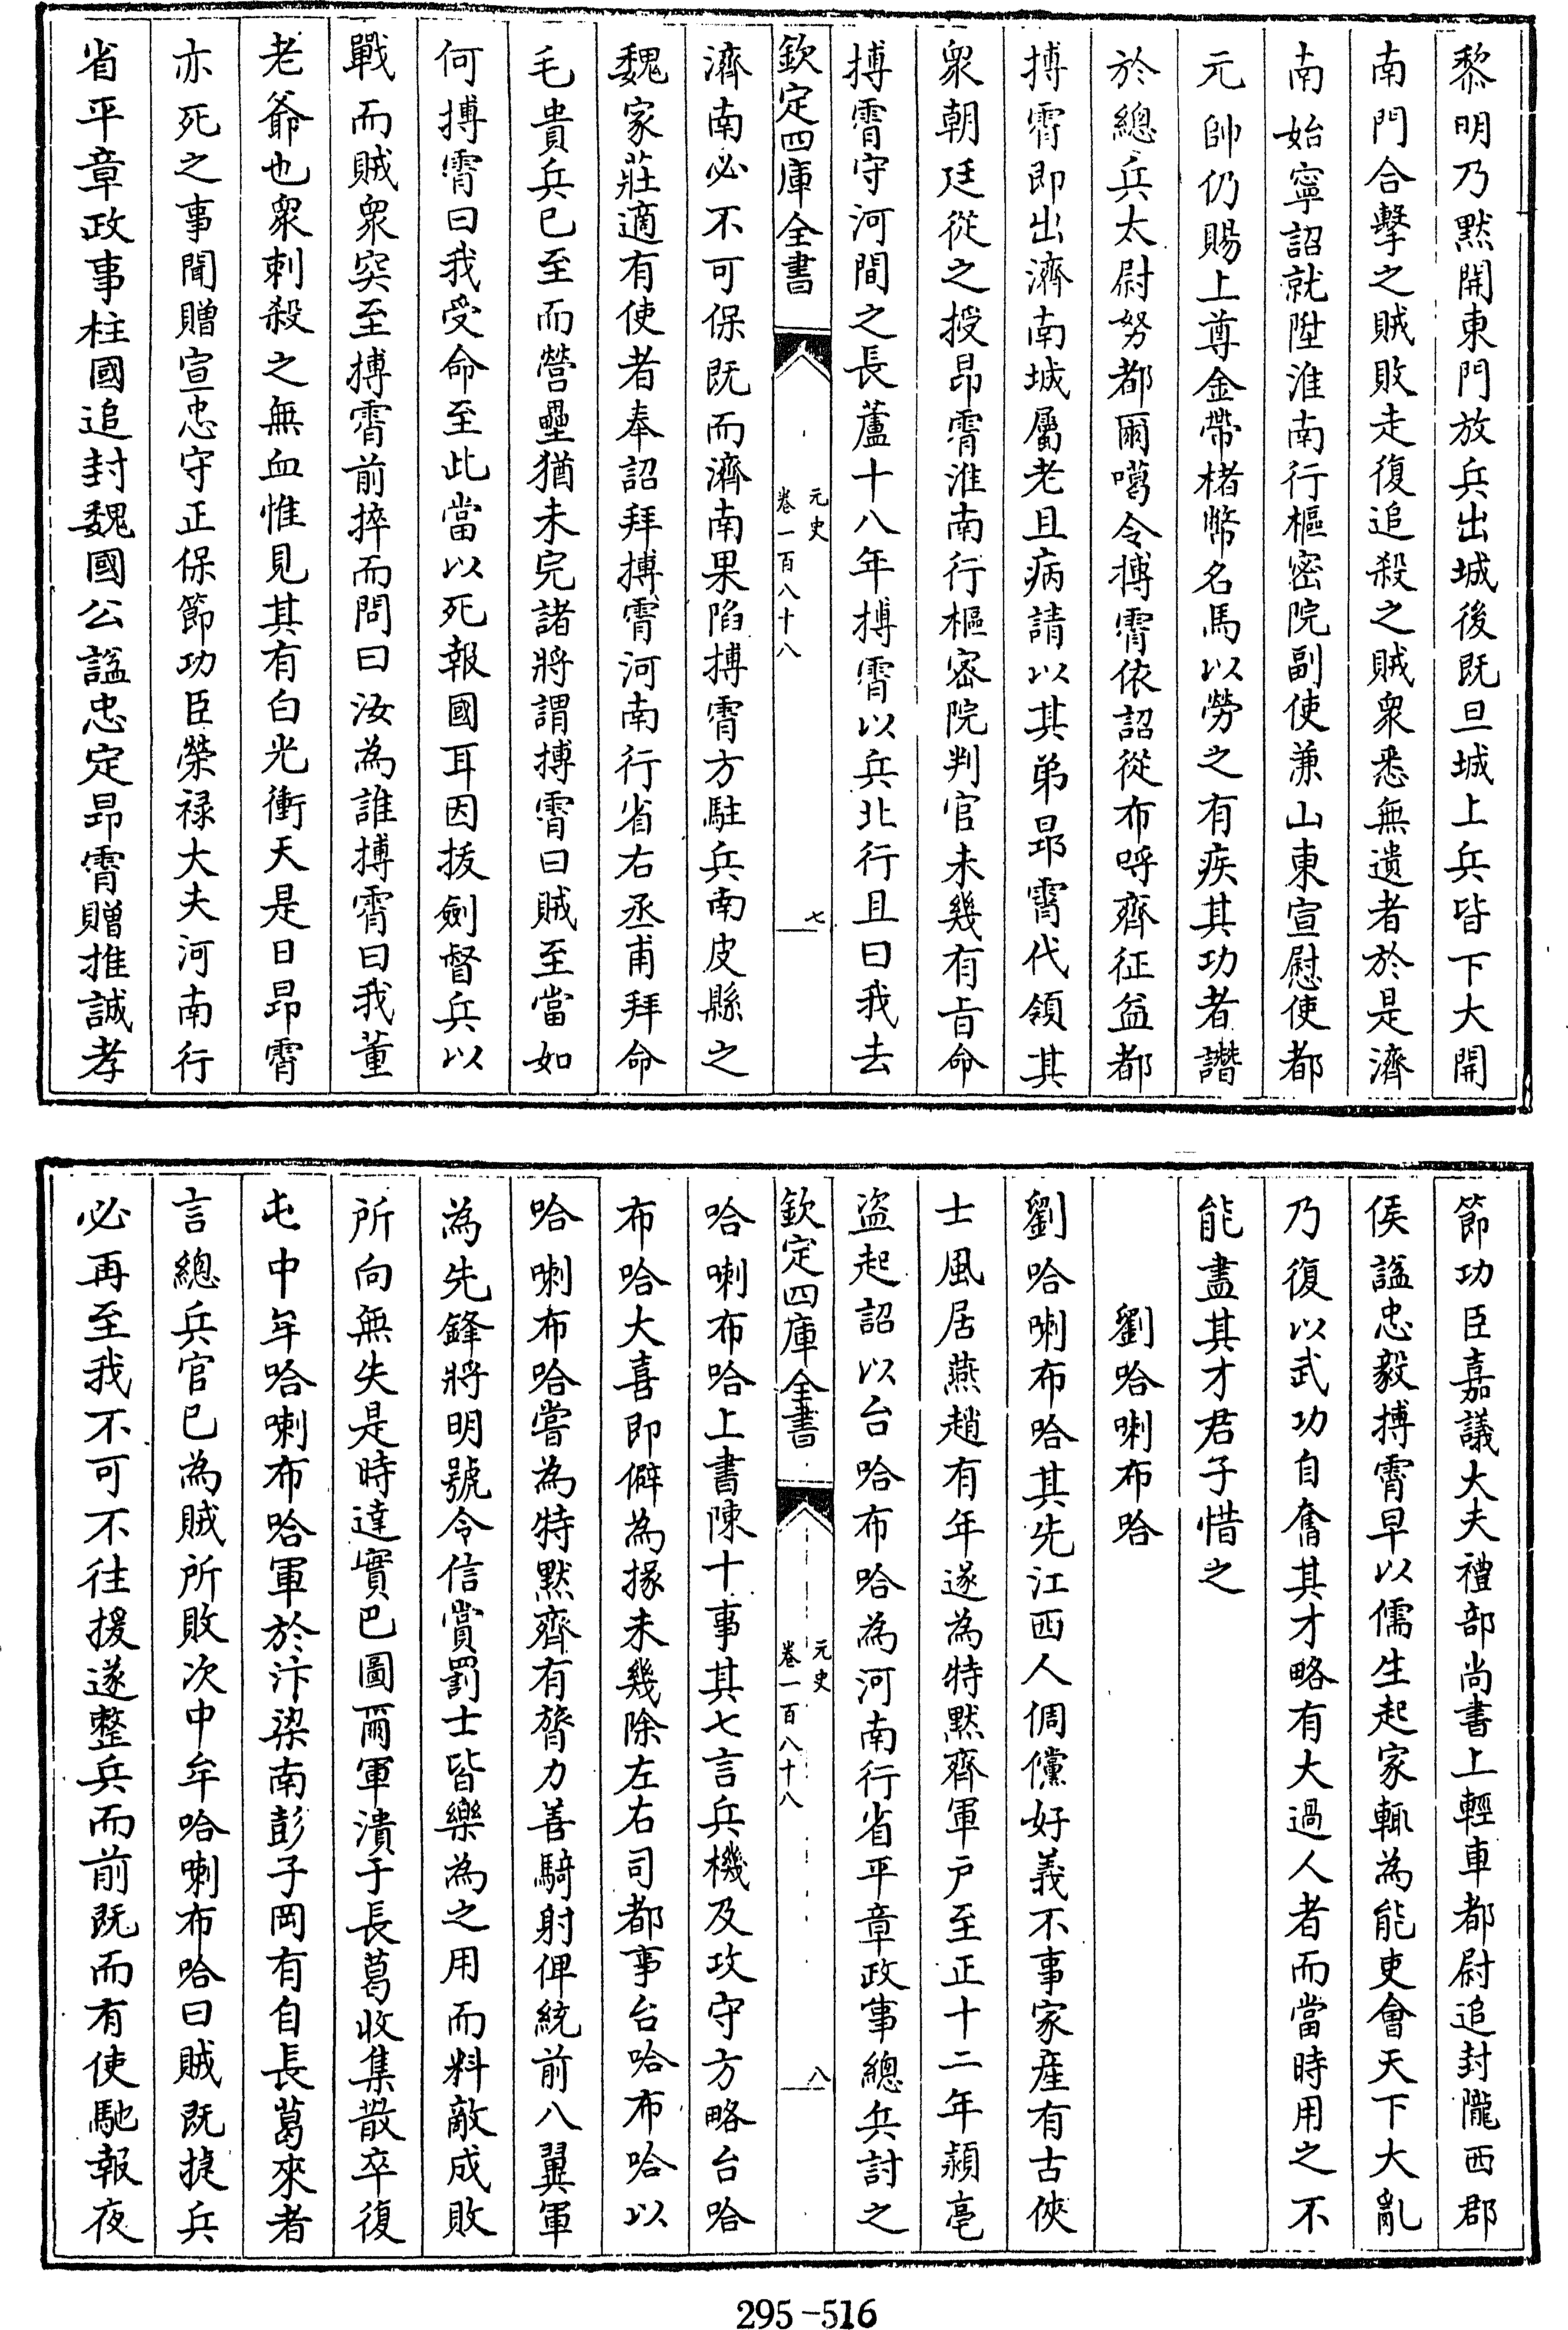 黎明乃黙開東門放兵出城後既旦城上兵皆下大開
南門合擊之賊敗走復追殺之賊衆悉無遺者於是濟
南始寧詔就陞淮南行樞密院副使兼山東宣慰使都
元帥仍賜上尊金帶楮幣名馬以勞之有疾其功者譖
於總兵太尉努都爾噶令搏霄依詔從布呼齊征益都
搏霄即出濟南城屬老且病請以其弟昻霄代領其
衆朝廷從之授昻霄淮南行樞密院判官未幾有旨命
搏霄守河間之長蘆十八年搏霄以兵北行且曰我去
欽定四庫全書
元史
卷一百八十八
七
濟南必不可保既而濟南果陷搏霄方駐兵南皮縣之
魏家莊適有使者奉詔拜搏霄河南行省右丞甫拜命
毛貴兵已至而營壘猶未完諸將謂搏霄曰賊至當如
何搏霄曰我受命至此當以死報國耳因拔劍督兵以
戰而賊衆突至搏霄前捽而問曰汝為誰搏霄曰我董
老爺也衆刺殺之無血惟見其有白光衝天是日昻霄
亦死之事聞贈宣忠守正保節功臣榮禄大夫河南行
省平章政事柱國追封魏國公諡忠定昻霄贈推誠孝
節功臣嘉議大夫禮部尚書上輕車都尉追封隴西郡
侯諡忠毅搏霄早以儒生起家輒為能吏會天下大亂
乃復以武功自奮其才略有大過人者而當時用之不
能盡其才君子惜之
劉哈喇布哈
劉哈喇布哈其先江西人倜儻好義不事家產有古俠
士風居燕趙有年遂為特黙齊軍戶至正十二年潁亳
盜起詔以台哈布哈為河南行省平章政事總兵討之
欽定四庫全書
元史
卷一百八十八
八
哈喇布哈上書陳十事其七言兵機及攻守方略台哈
布哈大喜即僻為掾未幾除左右司都事台哈布哈以
哈喇布哈嘗為特黙齊有膂力善騎射俾統前八翼軍
為先鋒將明號令信賞罰士皆樂為之用而料敵成敗
所向無失是時達實巴圖爾軍潰于長葛收集散卒復
屯中牟哈喇布哈軍於汴梁南彭子岡有自長葛來者
言總兵官已為賊所敗次中牟哈喇布哈曰賊既捷兵
必再至我不可不往援遂整兵而前既而有使馳報夜
295-516